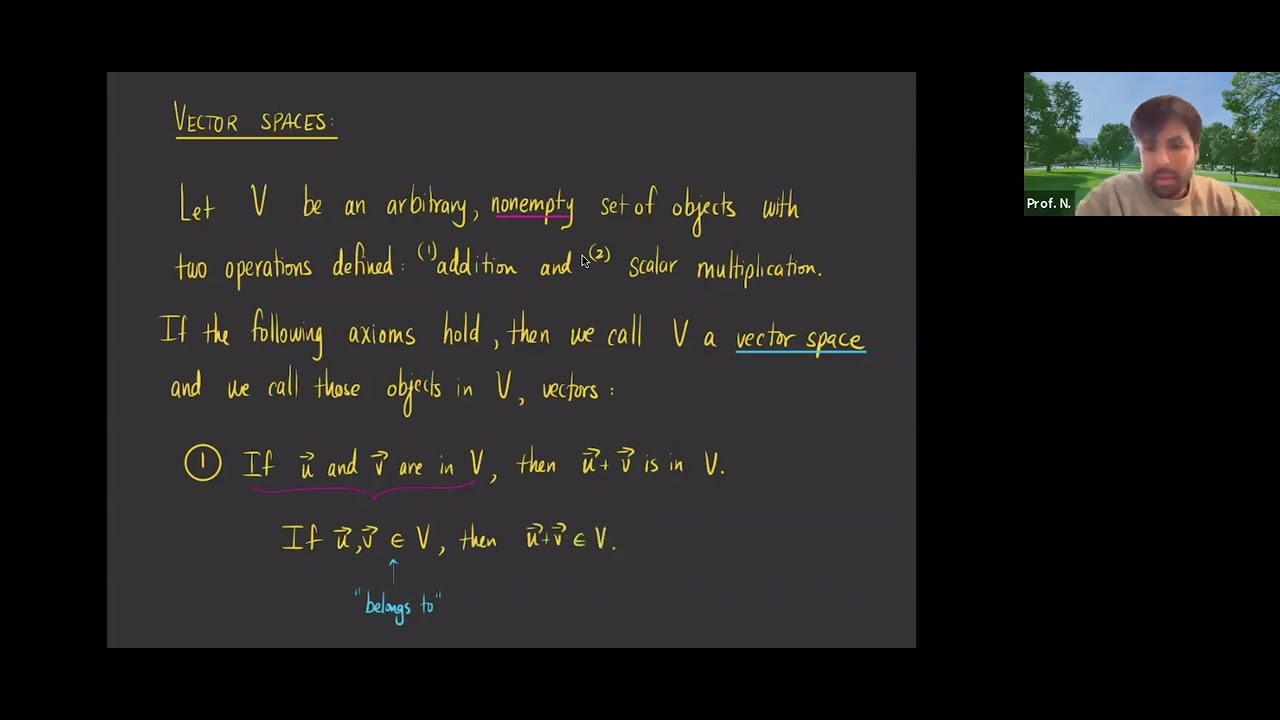 VECTOR SPACES:
Let V be an arbitrary, nonempty set of objects with
two operations defined: (1) addition and (2) scalar multiplication.
If the following axioms hold, then we call V a vector space
and we call those objects in V, vectors:
① If u⃗ and v⃗ are in V, then u⃗+v⃗ is in V.
If u⃗,v⃗ ∈ V, then u⃗+v⃗ ∈ V.
↑
"belongs to"
Prof. N.